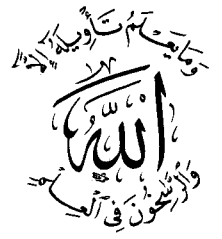 وَمَا يَعْلَمُ تَأْوِيلَهُ إِلَّا
اللّٰهُ
وَالرَّاسِخُونَ فِي الْعِلْمِ